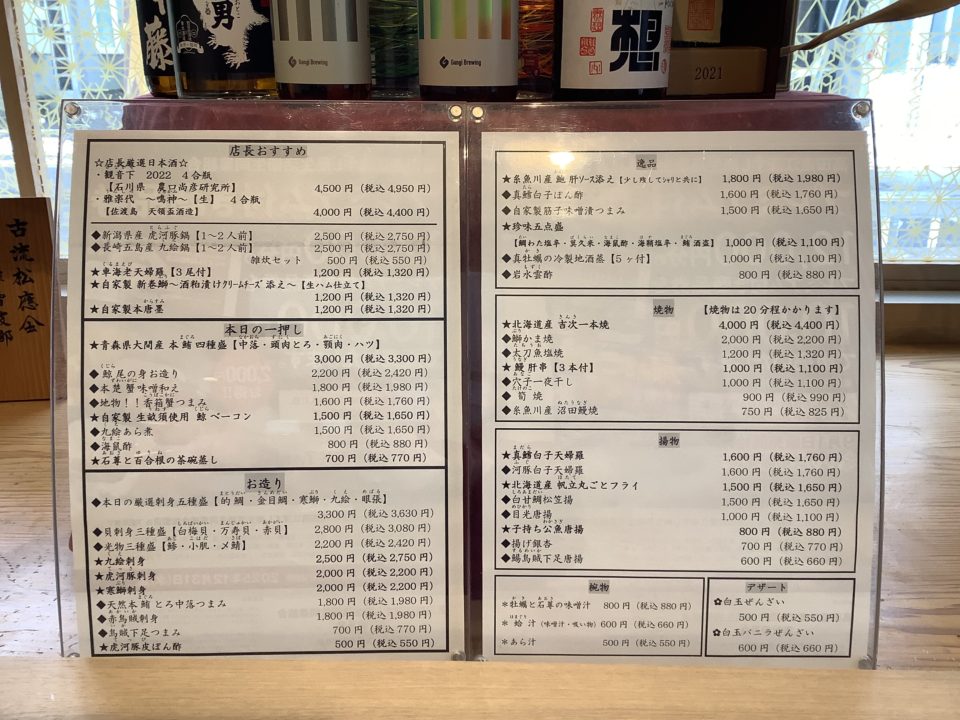 男
藤
Gangi Brewing
Gangi Brewing
想
2021
古流松應会
店長おすすめ
☆店長厳選日本酒☆
・観音下 2022 4合瓶
【石川県 農口尚彦研究所】 4,500円（税込4,950円）
・雅楽代 〜鳴神〜【生】 4合瓶
【佐渡島 天領盃酒造】 4,000円（税込4,400円）
◆新潟県産 虎河豚鍋【1〜2人前】 2,500円（税込2,750円）
◆長崎五島産 九絵鍋【1〜2人前】 2,500円（税込2,750円）
雑炊セット 500円（税込550円）
★車海老天婦羅【3尾付】 1,200円（税込1,320円）
★自家製 新巻鰤〜酒粕漬けクリームチーズ添え〜【生ハム仕立て】
1,200円（税込1,320円）
★自家製本唐墨 1,200円（税込1,320円）
本日の一押し
★青森県大間産 本鮪 四種盛【中落・頭肉とろ・顎肉・ハツ】
3,000円（税込3,300円）
◆鯨尾の身お造り 2,200円（税込2,420円）
◆本楚蟹味噌和え 1,800円（税込1,980円）
◆地物！！香箱蟹つまみ 1,600円（税込1,760円）
★自家製 生畝須使用 鯨ベーコン 1,500円（税込1,650円）
◆九絵あら煮 1,500円（税込1,650円）
◆海鼠酢 800円（税込880円）
★石蓴と百合根の茶碗蒸し 700円（税込770円）
お造り
◆本日の厳選刺身五種盛【的鯛・金目鯛・寒鰤・九絵・眼張】
3,300円（税込3,630円）
◆貝刺身三種盛【白梅貝・万寿貝・赤貝】 2,800円（税込3,080円）
◆光物三種盛【鯵・小肌・〆鯖】 2,200円（税込2,420円）
★九絵刺身 2,500円（税込2,750円）
★虎河豚刺身 2,000円（税込2,200円）
★寒鰤刺身 2,000円（税込2,200円）
◆天然本鮪 とろ中落つまみ 1,800円（税込1,980円）
◆赤烏賊刺身 1,800円（税込1,980円）
◆烏賊下足つまみ 700円（税込770円）
★虎河豚皮ぽん酢 500円（税込550円）
逸品
★糸魚川産 鮑 肝ソース添え【少し残してシャリと共に】 1,800円（税込1,980円）
◆真鱈白子ぽん酢 1,600円（税込1,760円）
◆自家製筋子味噌漬つまみ 1,500円（税込1,650円）
★珍味五点盛
【鯛わた塩辛・莫久来・海鼠酢・海鞘塩辛・鮪酒盗】 1,000円（税込1,100円）
◆真牡蠣の冷製地酒蒸【5ヶ付】 1,000円（税込1,100円）
◆岩水雲酢 800円（税込880円）
焼物 【焼物は20分程かかります】
★北海道産 吉次一本焼 4,000円（税込4,400円）
◆鰤かま焼 2,000円（税込2,200円）
◆太刀魚塩焼 1,200円（税込1,320円）
★鰻肝串【3本付】 1,000円（税込1,100円）
◆穴子一夜干し 1,000円（税込1,100円）
◆筍焼 900円（税込990円）
◆糸魚川産 沼田鰻焼 750円（税込825円）
揚物
★真鱈白子天婦羅 1,600円（税込1,760円）
◆河豚白子天婦羅 1,600円（税込1,760円）
★北海道産 帆立丸ごとフライ 1,500円（税込1,650円）
◆白甘鯛松笠揚 1,500円（税込1,650円）
◆目光唐揚 1,000円（税込1,100円）
★子持ち公魚唐揚 800円（税込880円）
◆揚げ銀杏 700円（税込770円）
◆鯣烏賊下足唐揚 600円（税込660円）
椀物
＊牡蠣と石蓴の味噌汁 800円（税込880円）
＊蛤汁（味噌汁・吸い物）600円（税込660円）
＊あら汁 500円（税込550円）
デザート
✿白玉ぜんざい
500円（税込550円）
✿白玉バニラぜんざい
600円（税込660円）